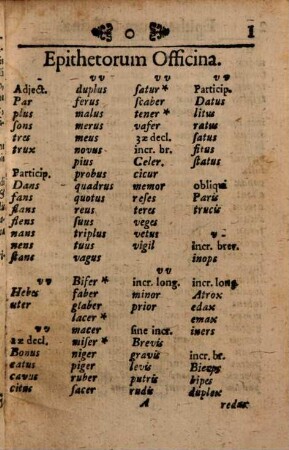 O 1
Epithetorum Officina.
υυ υυ
Adject. duplus satur * Particip.
Par ferus scaber Datus
plus malus tener * litus
sons merus vafer ratus
tres meus 3x decl. satus
trux novus incr. br. situs
pius Celer. status
Particip. probus cicur
Dans quadrus memor obliqui
fans quotus reses Paris
flans reus teres trucis
fiens suus veges
nans triplus vetus υ
nens tuus vigil incr. brev.
stans vagus inops
υυ υυ
Bifer * incr. long. incr. long.
Hebes faber minor Atrox
uter glaber prior edax
lacer * emax
υυ macer sine incr. iners
2x decl. miser * Brevis
Bonus niger gravis incr. br.
catus piger levis Biceps
cavus ruber putris bipes
citus sacer rudis duplex
A redux